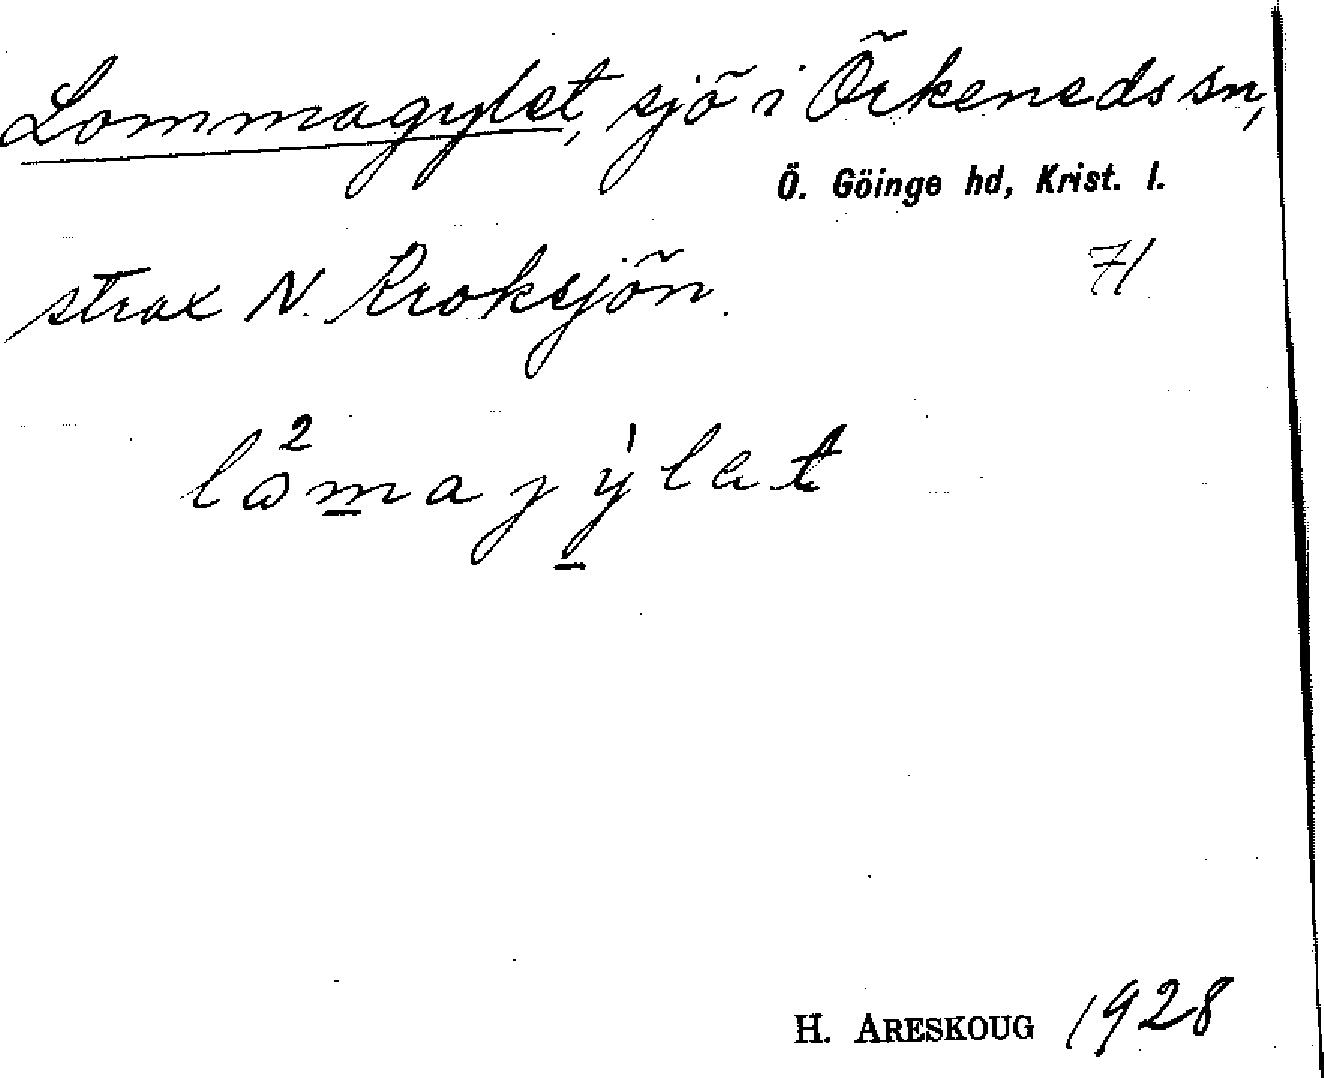 Lommagylet, sjö i Örkeneds sn,
Ö. Göinge hd, Krist. l.
strax N. Kroksjön. 71
H. ARESKOUG 1928